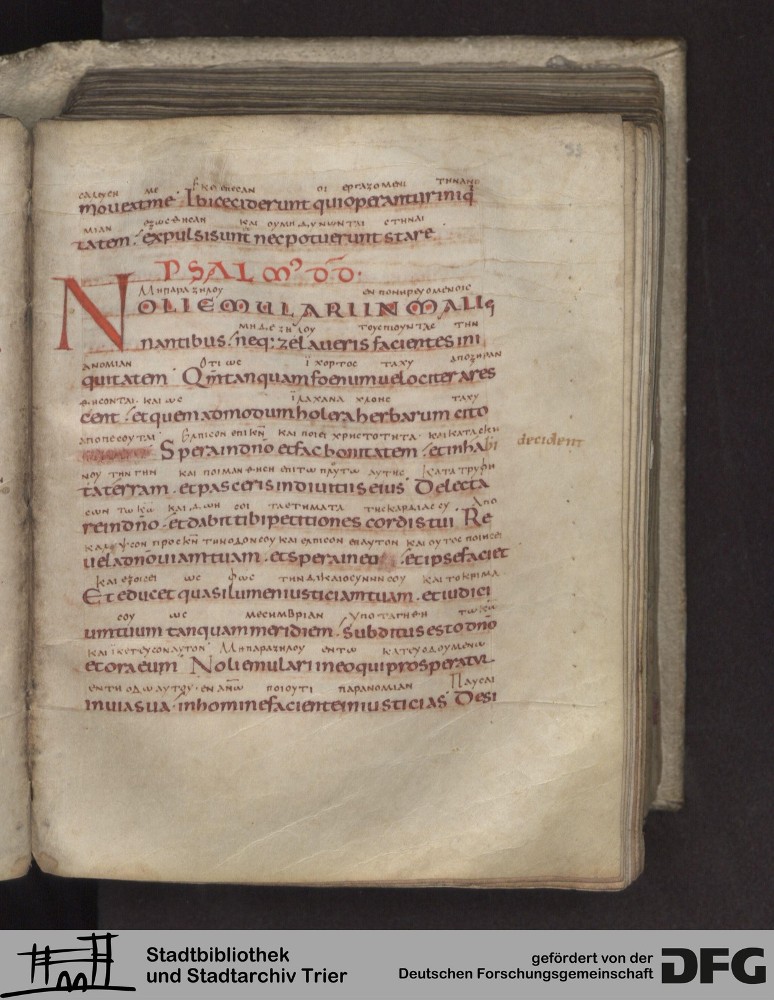 33
σαλευσι με · Εκει επεσαν οι εργαζομενι την ανο
moveatme · Ibi ceciderunt qui operantur iniq
μιαν εξωσθησαν και ου μη δυνωνται στηναι
tatem · expulsi sunt nec potuerunt stare
PSALMꝰ DD·
Μη παραζηλου εν πονηρευομενοις
NOLI EMULARI IN MALIG
μηδε ζηλου τους πιουντας την
nantibus · neq: zelaveris facientes ini
ανομιαν Οτι ως ϊ χορτος ταχυ αποξηραν
quitatem · Qm̅ tanquam foenum velociter ares
θησονται · και ως ϊ λαχανα χλοης ταχυ
cent · et quem admodum holera herbarum cito
αποπεσουται Ελπισον επι κν̅ και ποιει χριστοτητα · και κατασκη
Spera in dn̅o et fac bonitatem · et inhabi
decident
νου την γην και ποιμανθηση επι τω πλουτω αυτης Κατατρυφη
ta terram · et pasceris in divitiis eius Delecta
σων τω κω̅ και δωη σοι τα ετηματα της καρδιας σου Απο
re in dn̅o · et dabit tibi petitiones cordis tui Re
καλυψον προς κν̅ την οδον σου και ελπισον επ αυτον και αυτος ποιησει
vela dn̅o viam tuam · et spera in eo · et ipse faciet
και εξοισει ως φως την δικαιοσυνην σου και το κριμα
Et educet quasi lumen iusticiam tuam · et iudici
σου ως μεσημβριαν Υποταγηθι τω κω̅
um tuum tanquam meridiem · Subditus esto dn̅o
και ικετευσον αυτον Μη παραζηλου εν τω κατευοδουμενω
et ora eum Noli emulari in eo qui prosperatur
εν τη οδω αυτου · εν ανω̅ ποιουτι παρανομιαν Παυσαι
in via sua · in homine faciente iniusticias Desi
Stadtbibliothek
und Stadtarchiv Trier
gefördert von der
Deutschen Forschungsgemeinschaft
DFG